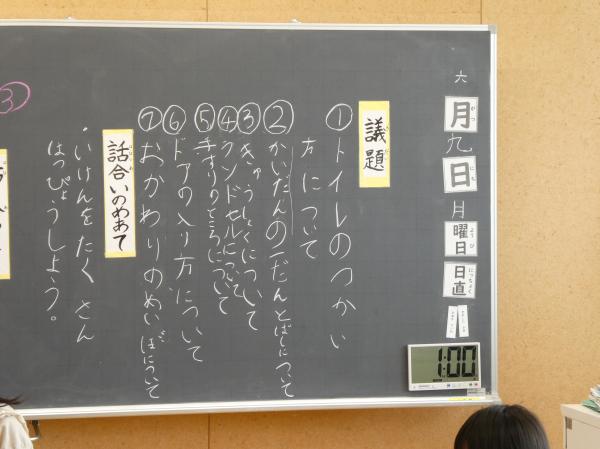 六月九日月曜日
日直
1:00
議題
①トイレのつかい
方について
②かいだんの一だんとばしについて
③きゅうしょくについて
④ランドセルについて
⑤手すりのところについて
⑥ドアの入り方について
⑦おかわりの について
話合いのめあて
・いけんをたくさん
はっぴょうしよう。
③